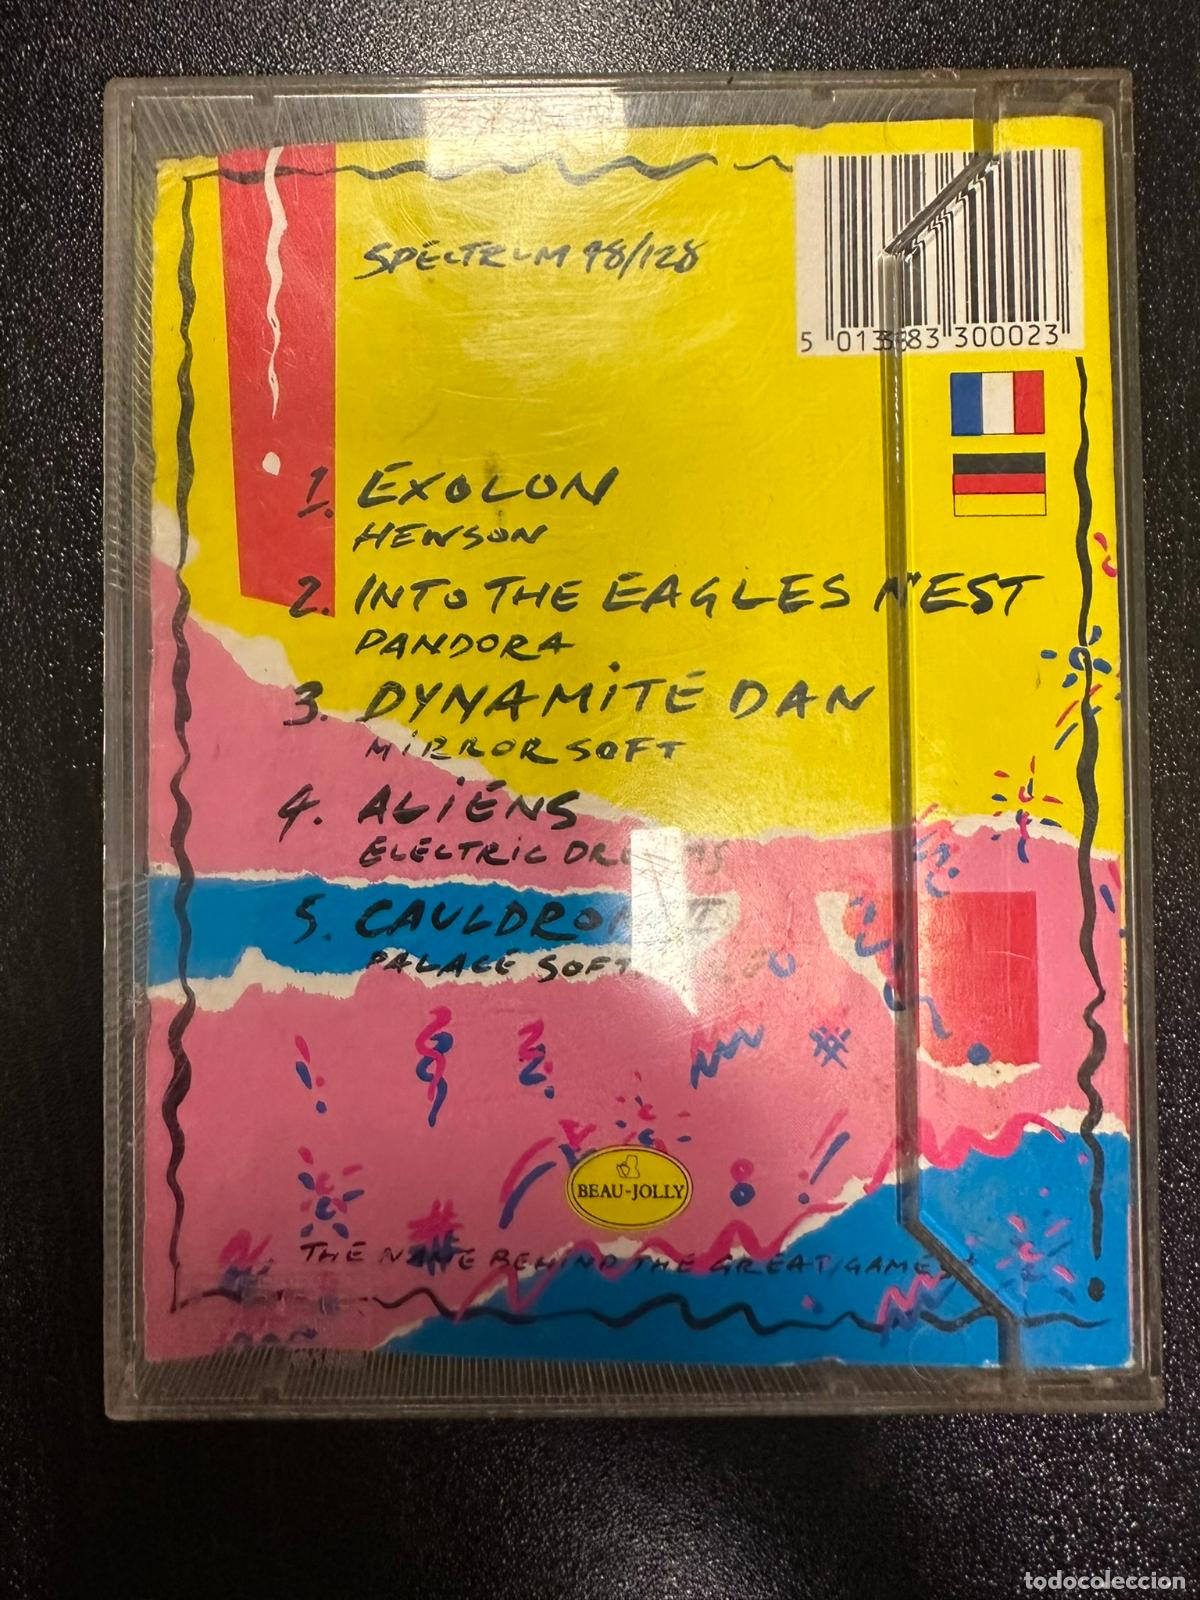 SPECTRUM 48/128
5 013383 300023
1. EXOLON
HEWSON
2. INTO THE EAGLES NEST
PANDORA
3. DYNAMITE DAN
MIRROR SOFT
4. ALIENS
ELECTRIC DREAMS
5. CAULDRON II
PALACE SOFTWARE
BEAU-JOLLY
THE NAME BEHIND THE GREAT GAMES
todocoleccion